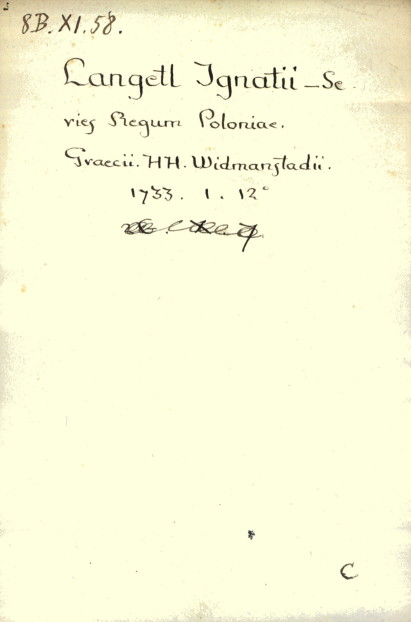 8B. XI. 58.
Langetl Ignatii - Se
ries Regum Poloniae.
Graecii. HH. Widmanstadii.
1733. 1. 12°
C